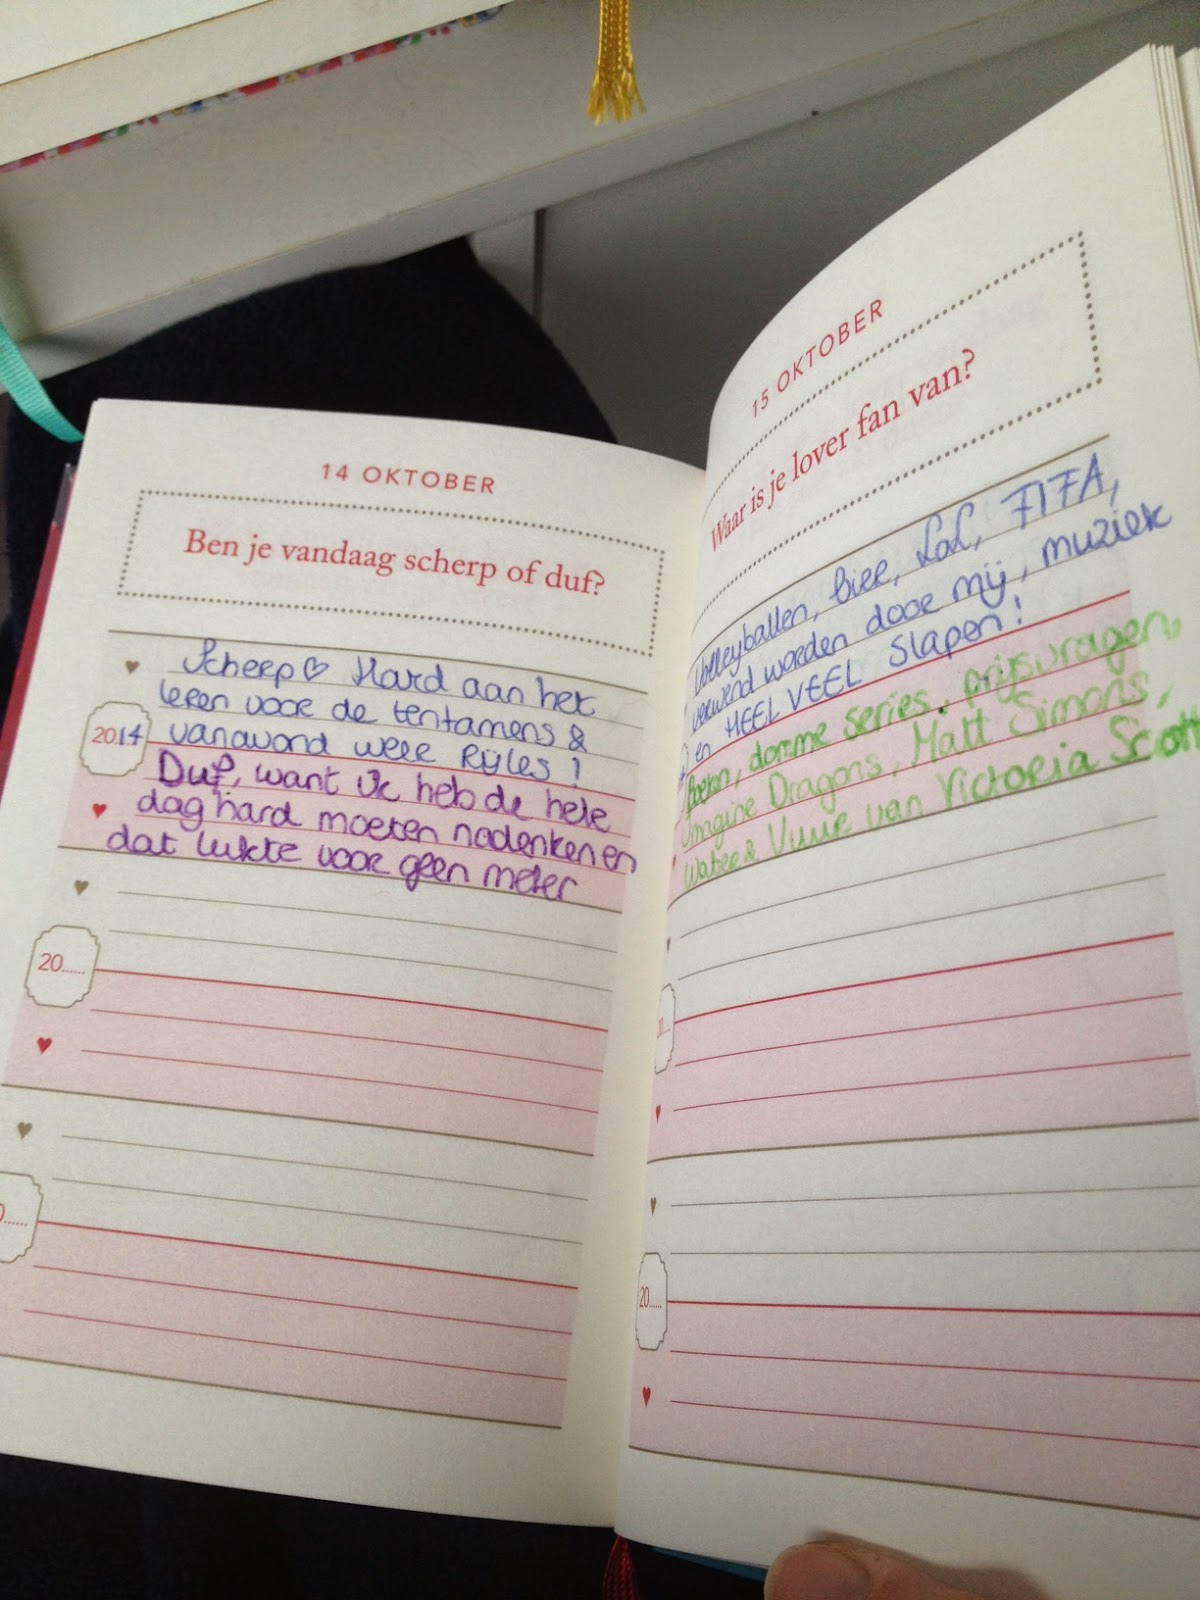 14 OKTOBER
Ben je vandaag scherp of duf?
Scherp Hard aan het
leren voor de tentamens &
2014
vanavond weer Rijles!
Duf, want ik heb de hele
dag hard moeten nadenken en
dat lukte voor geen meter
20......
......
15 OKTOBER
Waar is je lover fan van?
Volleyballen, bier, LoL, FIFA,
verwend worden door mij, muziek
en HEEL VEEL slapen!
Boeken, domme series, prijsvragen,
Imagine Dragons, Matt Simons,
Water & Vuur van Victoria Scott
20......